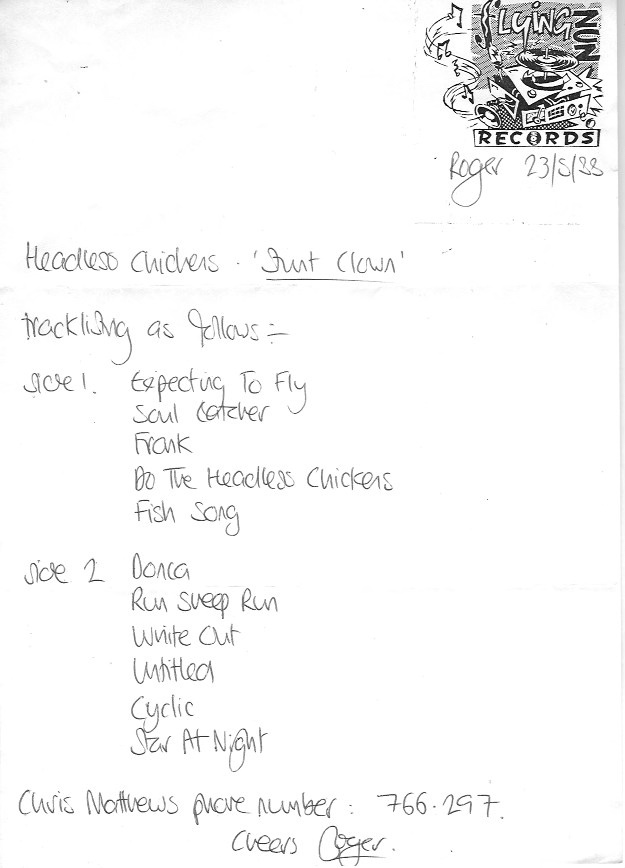 FLYING NUN
RECORDS
Roger 23/5/88
Headless Chickens · 'Stunt Clown'
tracklisting as follows:-
side 1. Expecting To Fly
Soul Catcher
Frank
Do The Headless Chickens
Fish Song
side 2 Donca
Run Sheep Run
White Out
Untitled
Cyclic
Star At Night
Chris Matthews phone number: 766·297.
Cheers Roger.